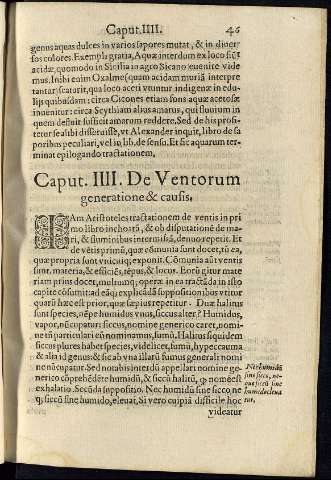 Caput. IIII. 46
genus aquas dulces in varios sapores mutat, & in diuer
sos colores. Exempli gratia, Aquæ interdum ex loco fiũt
acidæ, quomodo in Sicilia in agro Sicano euenire vide
mus. Inibi enim Oxalme (quam acidam muriã interpre
tantur) scaturit, qua loco aceti vtuntur indigenæ in edu-
lijs quibusdam: circa Cicones etiam fons aquæ acetosæ
inuenitur: circa Scythiam alius amarus, qui fluuium in
quem defluit sufficit amarum reddere. Sed de his profi-
tetur se alibi disseruisse, vt Alexander inquit, libro de sa
poribus peculiari, vel in lib. de sensu. Et sic aquarum ter
minat epilogando tractationem.
Caput. IIII. De Ventorum
generatione & causis.
IAm Aristoteles tractationem de ventis in pri
mo libro inchoatã, & ob disputationẽ de ma-
ri, & fluminibus intermissã, denuo repetit. Et
de vẽtis primũ, quæ cõmunia sunt docet, tũ ea,
quæ propria sunt vnicuiq; exponit. Cõmunia aũt ventis
sunt, materia, & efficiẽs, tẽpus, & locus. Eorũ igitur mate
riam prius docet, moliturq; operæ in ea tractãda in isto
capite cõsumit: ad eãq; explicãdã suppositionibus vtitur
quarũ hæc est prior, quæ sæpius repetitur. Duæ halitus
sunt species, nẽpe humidus vnus, siccus alter. Humidus,
vapor, nũcupatur: siccus, nomine generico caret, nomi-
ne tñ particulari eũ nominamus, fumũ. Halitus siquidem
siccus plures habet species, videlicet, fumũ, hypeccauma
& alia id genus: & sic ab vna illarũ fumus generali nomi
ne nũcupatur. Sed notabis interdũ appellari nomine ge-
nerico cõprehẽdẽte humidũ, & siccũ halitũ, ꝙ nomẽ est
exhalatio. Secũda suppositio. Nec humidũ sine sicco ne
q; siccũ sine humido, eleuat. Si vero cuipiã difficile hoc
videatur
Nec humidũ
sine sicco, ne-
que siccũ sine
humido eleua
tur.